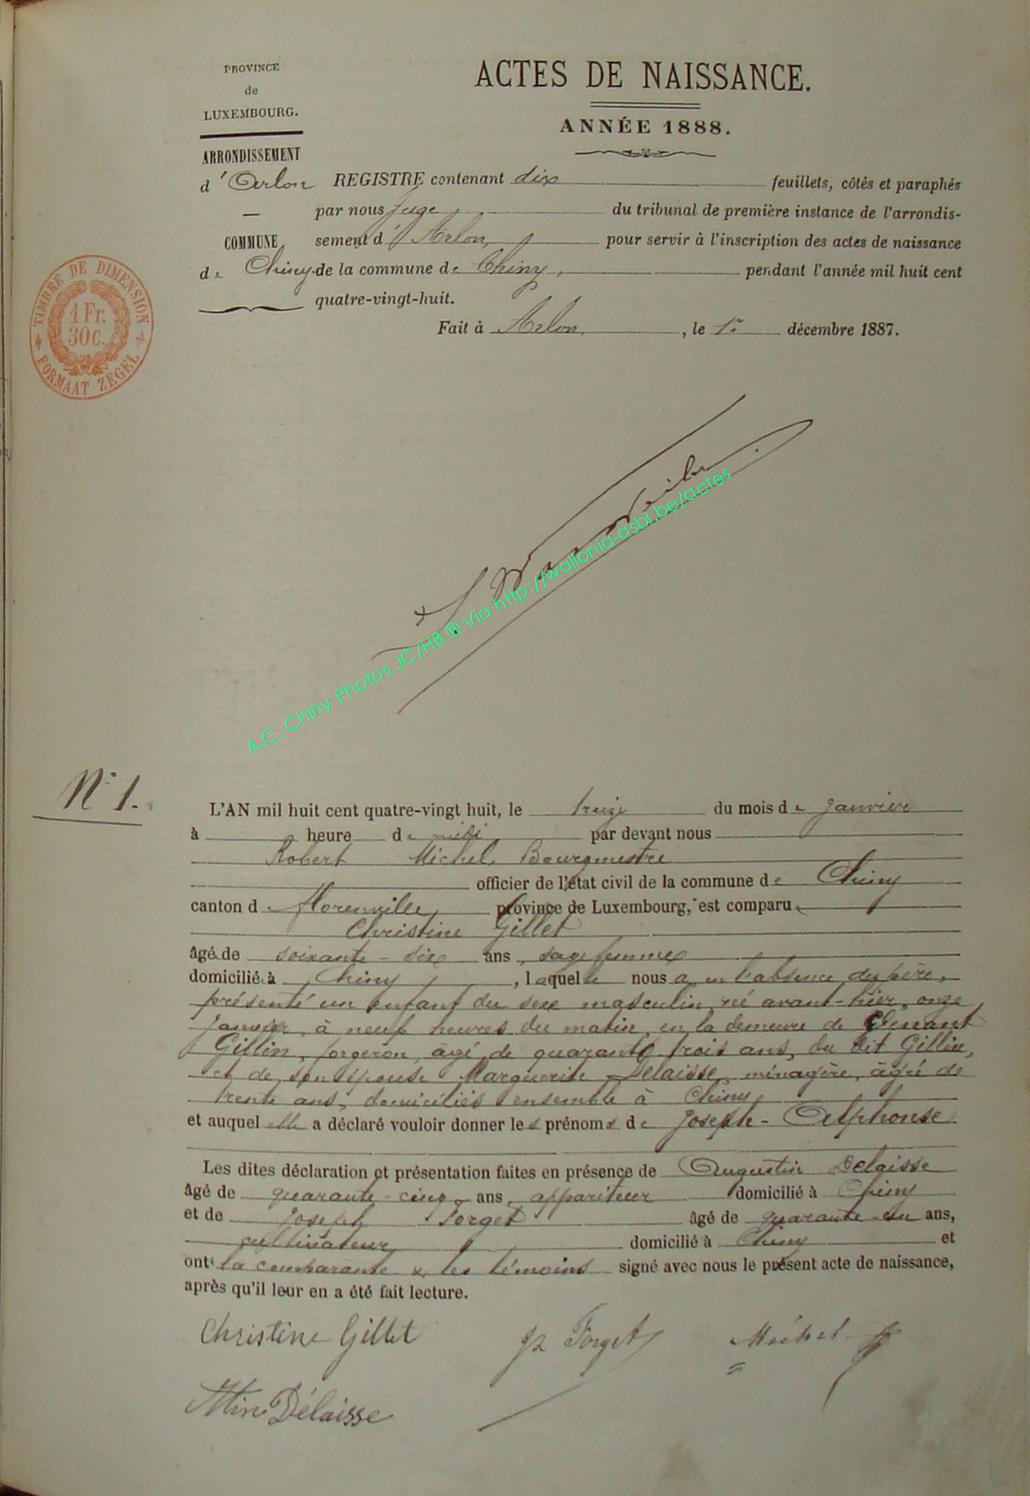 PROVINCE
de
LUXEMBOURG.
ARRONDISSEMENT
d'Arlon
COMMUNE
de Chiny.
ACTES DE NAISSANCE.
ANNÉE 1888.
REGISTRE contenant dix feuillets, côtés et paraphés
par nous juge du tribunal de première instance de l'arrondis-
sement d'Arlon, pour servir à l'inscription des actes de naissance
de la commune de Chiny, pendant l'année mil huit cent
quatre-vingt-huit.
Fait à Arlon, le 1er décembre 1887.
TIMBRE DE DIMENSION
1 Fr.
30 c.
FORMAAT ZEGEL
A.C. Chiny Photos JC/HB ® Via http://wallonia-asbl.be/actes
N° 1.
L'AN mil huit cent quatre-vingt huit, le treize du mois de janvier
à heure de midi par devant nous
Robert Michel, Bourgmestre
officier de l'état civil de la commune de Chiny
canton de Florenville, province de Luxembourg, est comparue
Christine Gillet
âgé de soixante-six ans, sage femme
domicilié à Chiny, laquelle nous a en l'absence du père,
présenté un enfant du sexe masculin, né avant-hier, onze
janvier, à neuf heures du matin, en la demeure de
Gillin, forgeron, âgé de quarante trois ans, du dit Gillin,
et de son épouse Marguerite Delaisse, ménagère, âgée de
trente ans, domiciliés ensemble à Chiny
et auquel elle a déclaré vouloir donner les prénoms de Joseph-Alphonse
Les dites déclaration et présentation faites en présence de Augustin Delaisse
âgé de quarante-cinq ans, appariteur domicilié à Chiny
et de Joseph Forget âgé de quarante-un ans,
cultivateur domicilié à Chiny et
ont la comparante & les témoins signé avec nous le présent acte de naissance,
après qu'il leur en a été fait lecture.
Christine Gillet Forget Michel
Délaisse